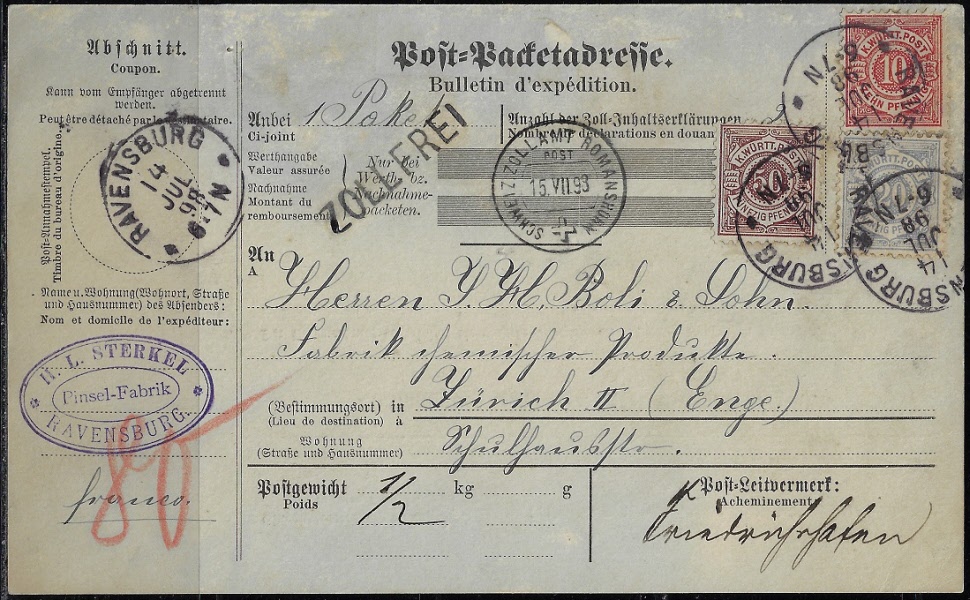 Abschnitt.
Coupon.
Kann vom Empfänger abgetrennt
werden.
Peut être détaché par le
Post-Annahmestempel.
Timbre du bureau d'origine.
RAVENSBURG
14
JUL
98
6-7N
Name u. Wohnung (Wohnort, Straße
und Hausnummer) des Absenders:
Nom et domicile de l'expéditeur:
H. L. STERKEL
Pinsel-Fabrik
RAVENSBURG.
franco.
80
Post-Packetadresse.
Bulletin d'expédition.
Anbei 1 Paket
Ci-joint
Anzahl der Zoll-Inhaltserklärungen 2
Nombre de déclarations en douane
Werthangabe
Valeur assurée
Nachnahme
Montant du
remboursement
Nur bei
Werth- bz.
Nachnahme-
packeten.
ZOLLFREI
SCHWEIZ. ZOLLAMT ROMANSHORN
POST
15.VII.93
K.WÜRTT.POST
10
ZEHN PFENNIG
K.WÜRTT.POST
50
K.WÜRTT.POST
20
ZWANZIG PFENNIG
RAVENSBURG
14
JUL
98
6-7N
An
A
Herren J. H. Boli & Sohn.
Fabrik chemischer Produkte.
(Bestimmungsort) in Zürich II (Enge.)
(Lieu de destination) à
Wohnung Schulhausstr.
(Straße und Hausnummer)
Postgewicht 1/2 kg g
Poids
Post-Leitvermerk:
Acheminement
Friedrichshafen